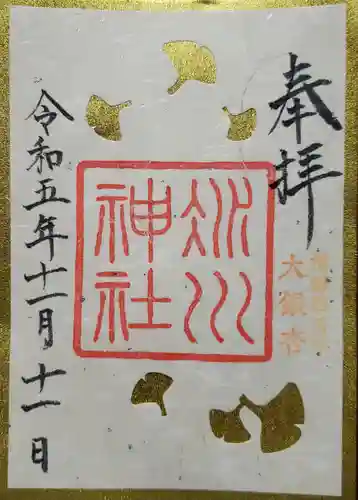 奉拝
大銀杏
氷川
神社
令和五年十一月十一日